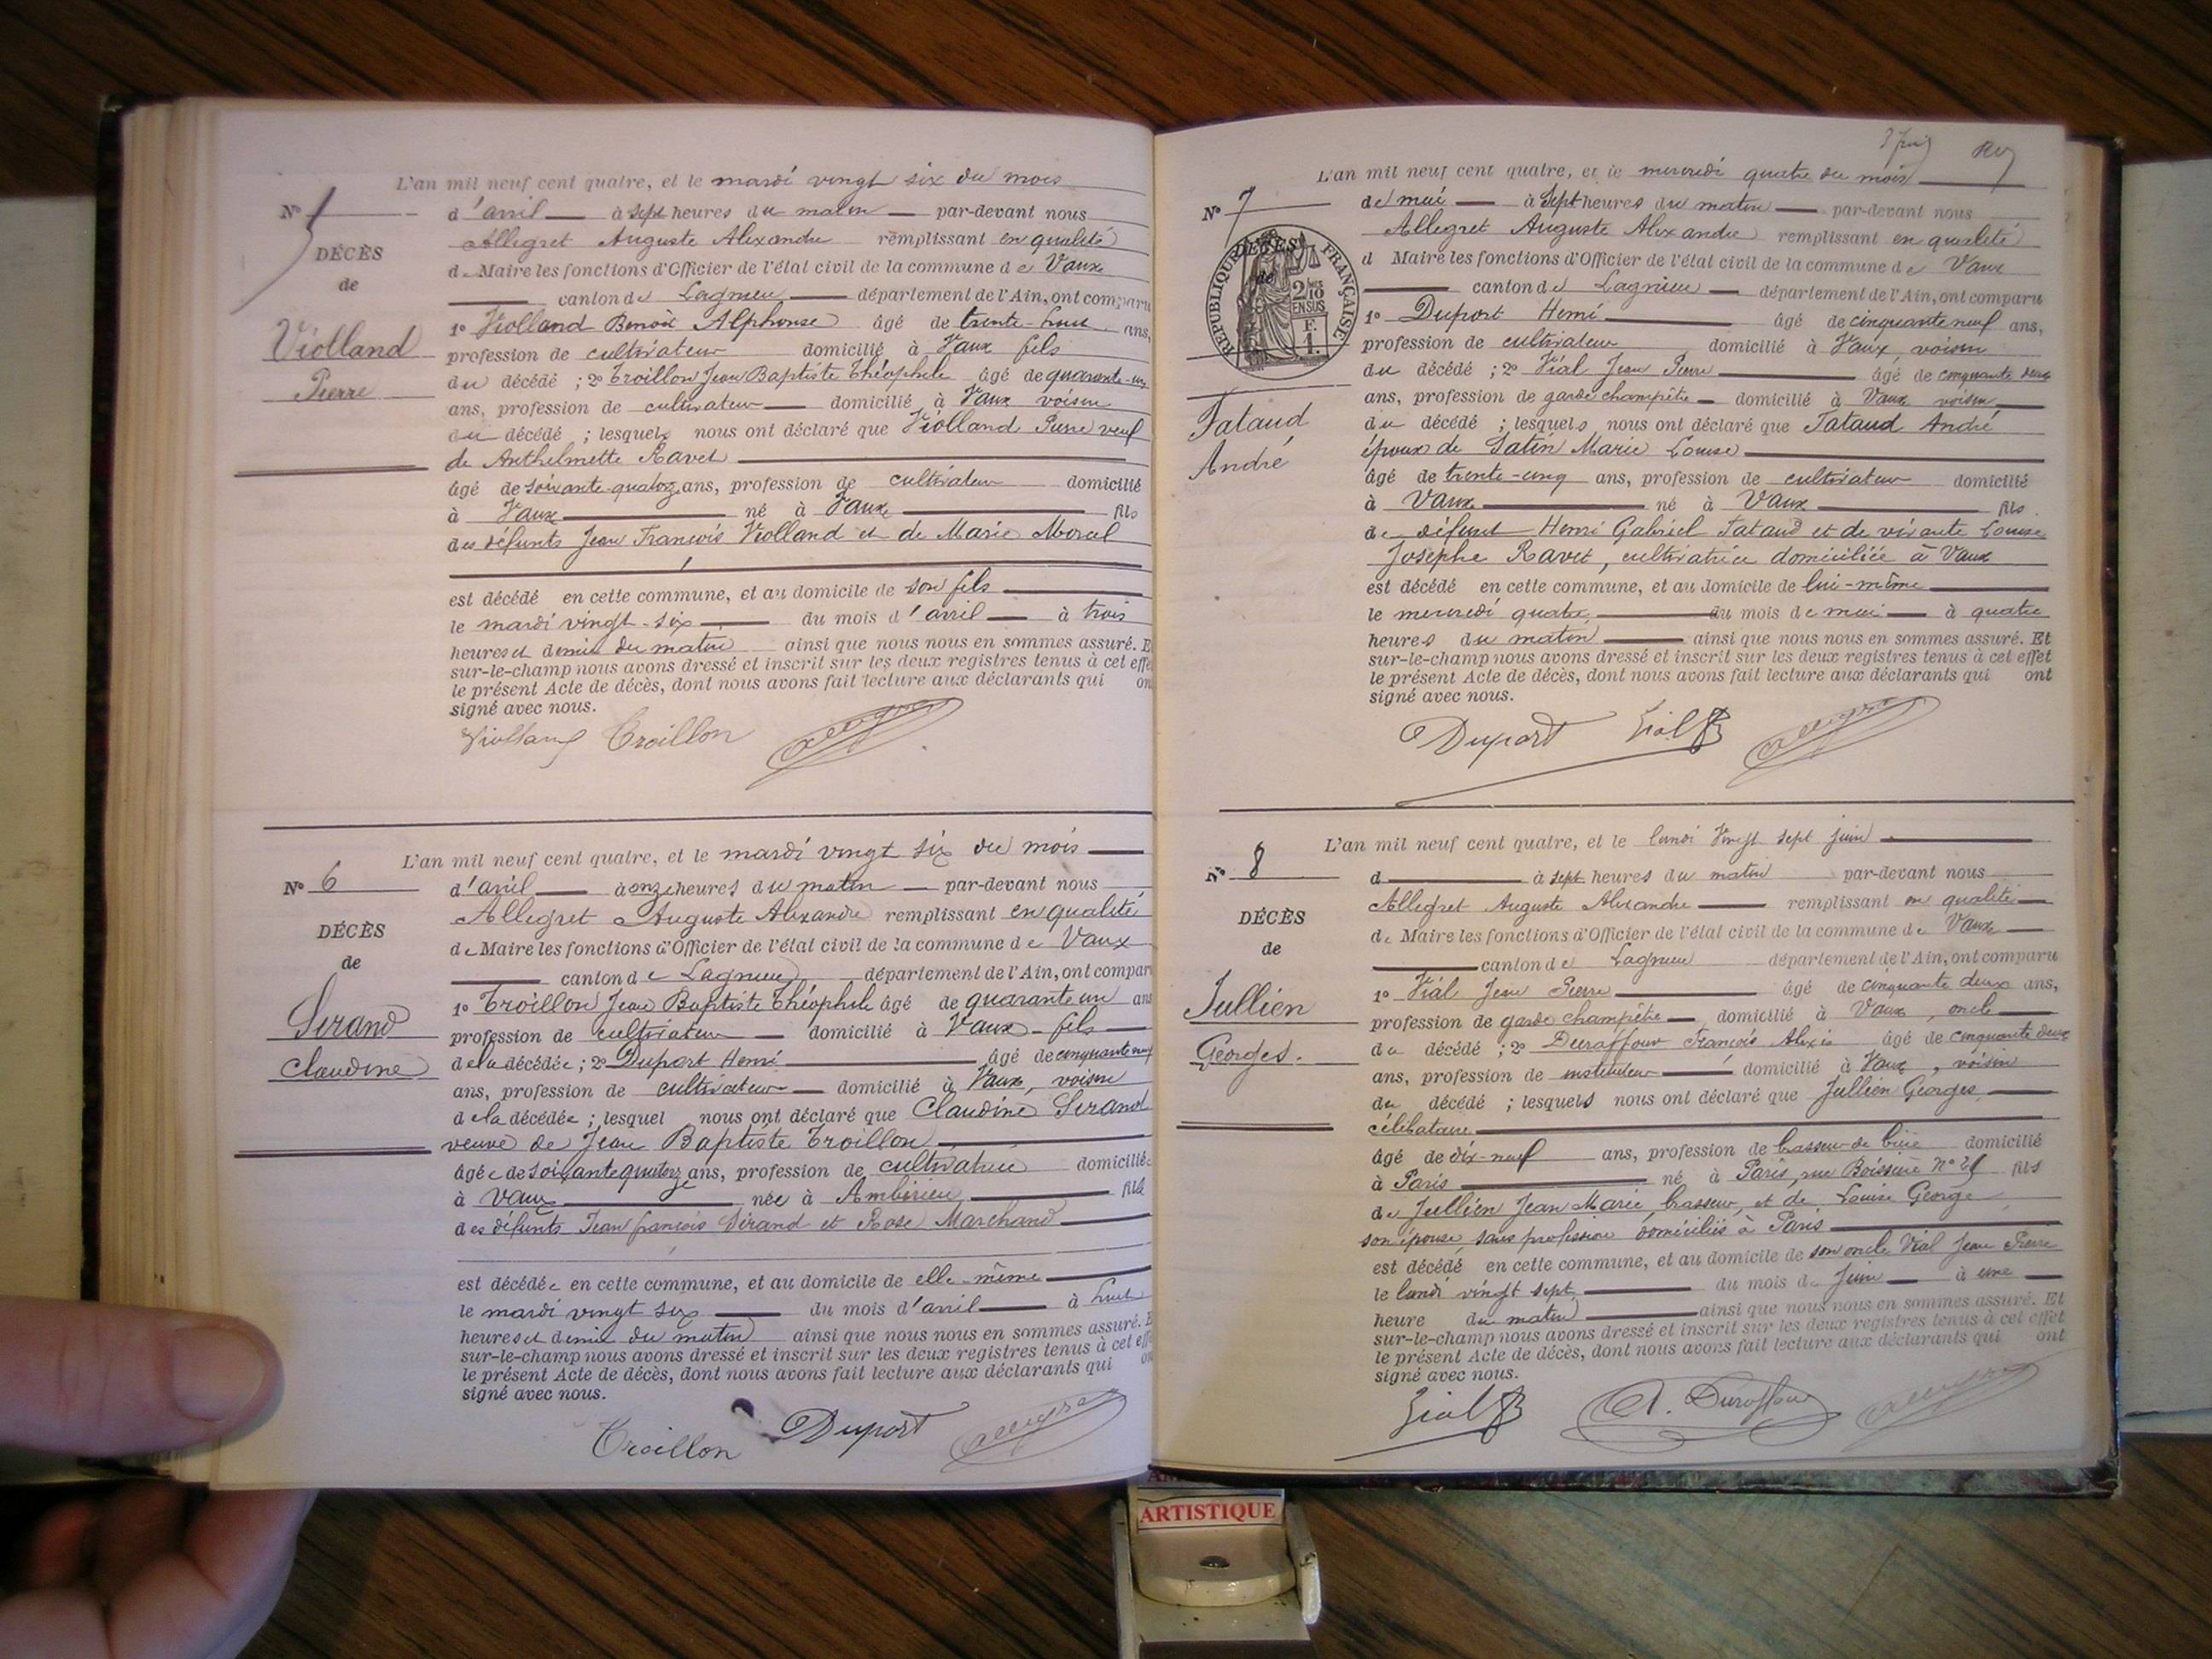 L'an mil neuf cent quatre, et le mardi vingt six du mois
N° 5
d'avril à sept heures du matin par-devant nous
Allegret Auguste Alexandre remplissant en qualité
DÉCÈS
de Maire les fonctions d'Officier de l'état civil de la commune de Vaux
de
canton de Lagnieu département de l'Ain, ont comparu
1° Violland Benoit Alphonse âgé de trente-huit ans,
Violland
profession de cultivateur domicilié à Vaux fils
Pierre
du décédé ; 2° Troillon Jean Baptiste Théophile âgé de quarante-un
ans, profession de cultivateur domicilié à Vaux voisin
du décédé ; lesquels nous ont déclaré que Violland Pierre veuf
de Anthelmette Ravet
âgé de soixante-quatorze ans, profession de cultivateur domicilié
à Vaux né à Vaux fils
des défunts Jean François Violland et de Marie Morel
est décédé en cette commune, et au domicile de son fils
le mardi vingt-six du mois d'avril à trois
heures et demie du matin ainsi que nous nous en sommes assuré. E
sur-le-champ nous avons dressé et inscrit sur les deux registres tenus à cet effe
le présent Acte de décès, dont nous avons fait lecture aux déclarants qui on
signé avec nous.
Violland Troillon
L'an mil neuf cent quatre, et le mardi vingt six du mois
N° 6
d'avril à onze heures du matin par-devant nous
Allegret Auguste Alexandre remplissant en qualité
DÉCÈS
de Maire les fonctions d'Officier de l'état civil de la commune de Vaux
de
canton de Lagnieu département de l'Ain, ont compar
1° Troillon Jean Baptiste Théophile âgé de quarante un ans
Serand
profession de cultivateur domicilié à Vaux - fils
Claudine
de la décédée ; 2° Duport Henri âgé de cinquante neuf
ans, profession de cultivateur domicilié à Vaux, voisin
de la décédée ; lesquel nous ont déclaré que Claudine Serand
veuve de Jean Baptiste Troillon
âgée de soixante quatorze ans, profession de cultivatrice domiciliée
à Vaux née à Ambérieu fille
des défunts Jean françois Sérand et Rose Marchand
est décédée en cette commune, et au domicile de elle-même
le mardi vingt six du mois d'avril à huit
heures et demie du matin ainsi que nous nous en sommes assuré. E
sur-le-champ nous avons dressé et inscrit sur les deux registres tenus à cet eff
le présent Acte de décès, dont nous avons fait lecture aux déclarants qui on
signé avec nous.
Troillon Duport
L'an mil neuf cent quatre, et le mercredi quatre du mois
N° 7
de mai à sept heures du matin par-devant nous
Allegret Auguste Alexandre remplissant en qualité
DÉCÈS
de
RÉPUBLIQUE FRANÇAISE
2/10 EN SUS
F. 1.
de Maire les fonctions d'Officier de l'état civil de la commune de Vaux
canton de Lagnieu département de l'Ain, ont comparu
1° Duport Henri âgé de cinquante neuf ans,
profession de cultivateur domicilié à Vaux, voisin
du décédé ; 2° Vial Jean Pierre âgé de cinquante deux
ans, profession de garde champêtre domicilié à Vaux voisin
Tataud
André
du décédé ; lesquels nous ont déclaré que Tataud André
époux de Satin Marie Louise
âgé de trente-cinq ans, profession de cultivateur domicilié
à Vaux né à Vaux fils
de défunt Henri Gabriel Tataud et de vivante Louise
Josephe Ravet, cultivatrice domiciliée à Vaux
est décédé en cette commune, et au domicile de lui-même
le mercredi quatre du mois de mai à quatre
heures du matin ainsi que nous nous en sommes assuré. Et
sur-le-champ nous avons dressé et inscrit sur les deux registres tenus à cet effet
le présent Acte de décès, dont nous avons fait lecture aux déclarants qui ont
signé avec nous.
Duport Vial
L'an mil neuf cent quatre, et le lundi vingt sept juin
N° 8
d à sept heures du matin par-devant nous
Allegret Auguste Alexandre remplissant en qualité
DÉCÈS
de Maire les fonctions d'Officier de l'état civil de la commune de Vaux
de
canton de Lagnieu département de l'Ain, ont comparu
1° Vial Jean Pierre âgé de cinquante deux ans,
Jullien
profession de garde champêtre domicilié à Vaux, oncle
Georges.
du décédé ; 2° Duraffour François Alexis âgé de cinquante deux
ans, profession de instituteur domicilié à Vaux, voisin
du décédé ; lesquels nous ont déclaré que Jullien Georges,
célibataire
âgé de dix-neuf ans, profession de brasseur de bière domicilié
à Paris né à Paris, rue Boissière n° fils
de Jullien Jean Marie, brasseur, et de Louise George
son épouse, sans profession domiciliés à Paris
est décédé en cette commune, et au domicile de son oncle Vial Jean Pierre
le lundi vingt sept du mois de Juin à une
heure du matin ainsi que nous nous en sommes assuré. Et
sur-le-champ nous avons dressé et inscrit sur les deux registres tenus à cet effet
le présent Acte de décès, dont nous avons fait lecture aux déclarants qui ont
signé avec nous.
Vial A. Duraffour
ARTISTIQUE